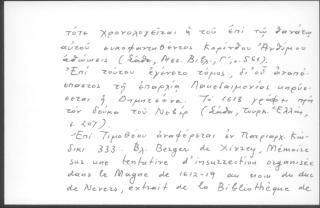 τότε χρονολογεῖται ἡ τοῦ ἐπὶ τῷ θανάτῳ
αὐτοῦ συκοφαντηθέντος Κορίνθου Ἀνθίμου
ἀθώωσις (Σάθα, Μεσ. Βιβλ., Γ', σ. 561).
Ἐπὶ τούτου ἐγένετο τόμος, δι' οὗ ἀναπό-
σπαστος τῇ ἐπαρχίᾳ Λακεδαιμονίας κηρύσ-
σεται ἡ Δημητσάνα. Τὸ 1613 γράφει πρὸς
τὸν δοῦκα τοῦ Νεβέρ (Σάθα, Τουρκ. Ἑλλάς,
σ. 207).
Ἐπὶ Τιμοθέου ἀναφέρεται ἐν Πατριαρχ. Κώ-
δικι 333. Βλ. Berger de Xivrey, Mémoire
sur une tentative d'insurrection organisée
dans le Magne de 1612-19 au nom du duc
de Nevers, extrait de la Bibliothèque de